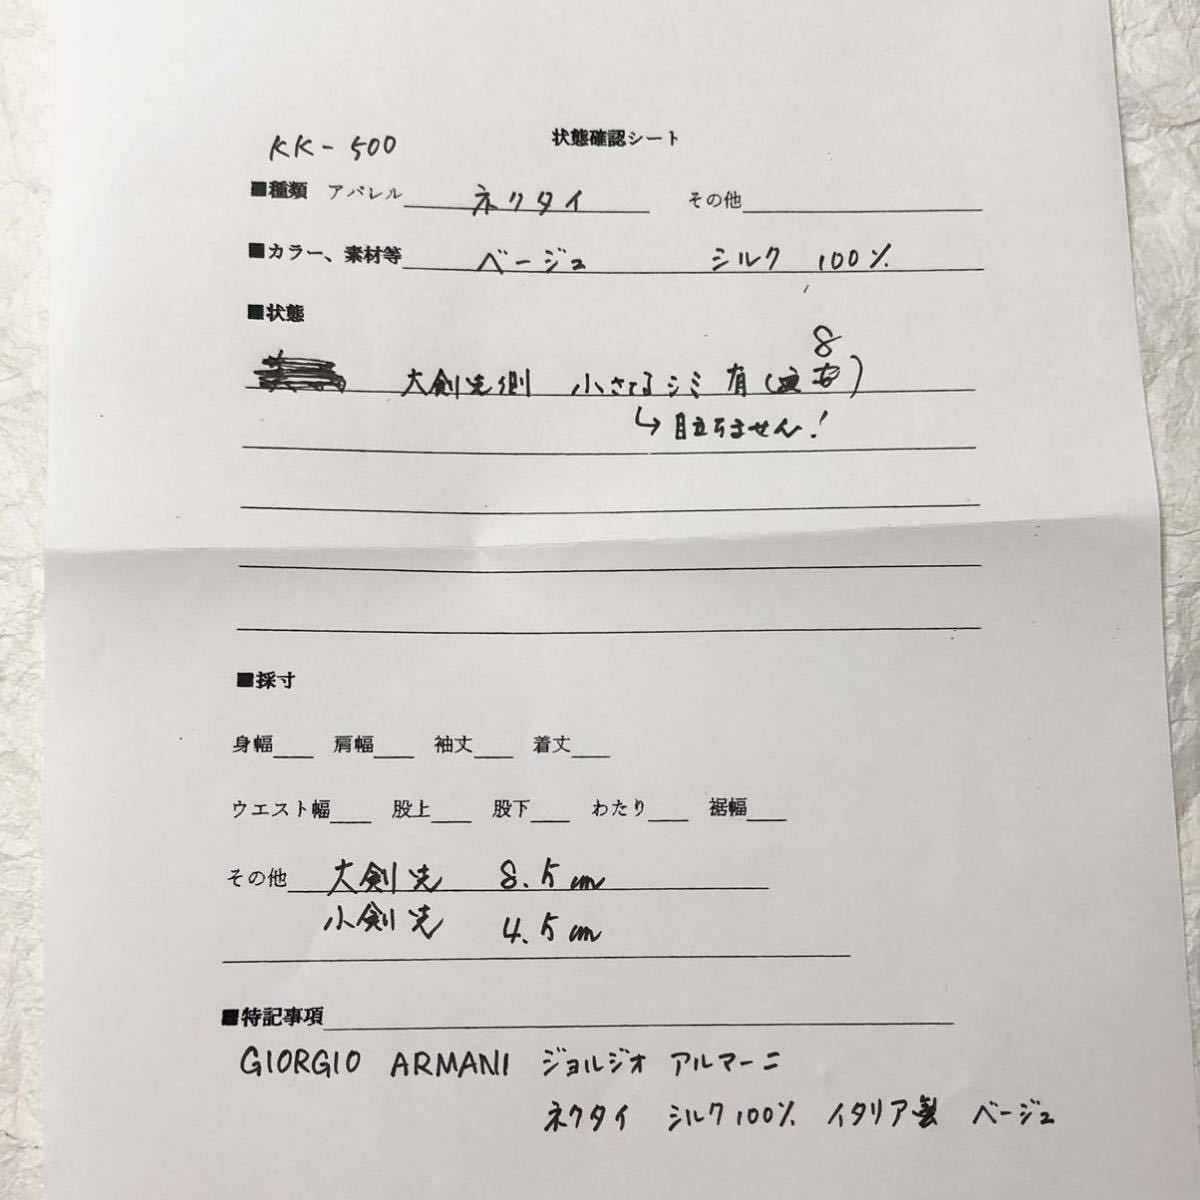 KK-500
状態確認シート
■種類 アパレル ネクタイ その他
■カラー、素材等 ベージュ シルク 100%
■状態
大剣先側 小さなシミ 有(
8
)
↳目立ちません!
■採寸
身幅 肩幅 袖丈 着丈
ウエスト幅 股上 股下 わたり 裾幅
その他 大剣先 8.5cm
小剣先 4.5cm
■特記事項
GIORGIO ARMANI ジョルジオ アルマーニ
ネクタイ シルク100% イタリア製 ベージュ